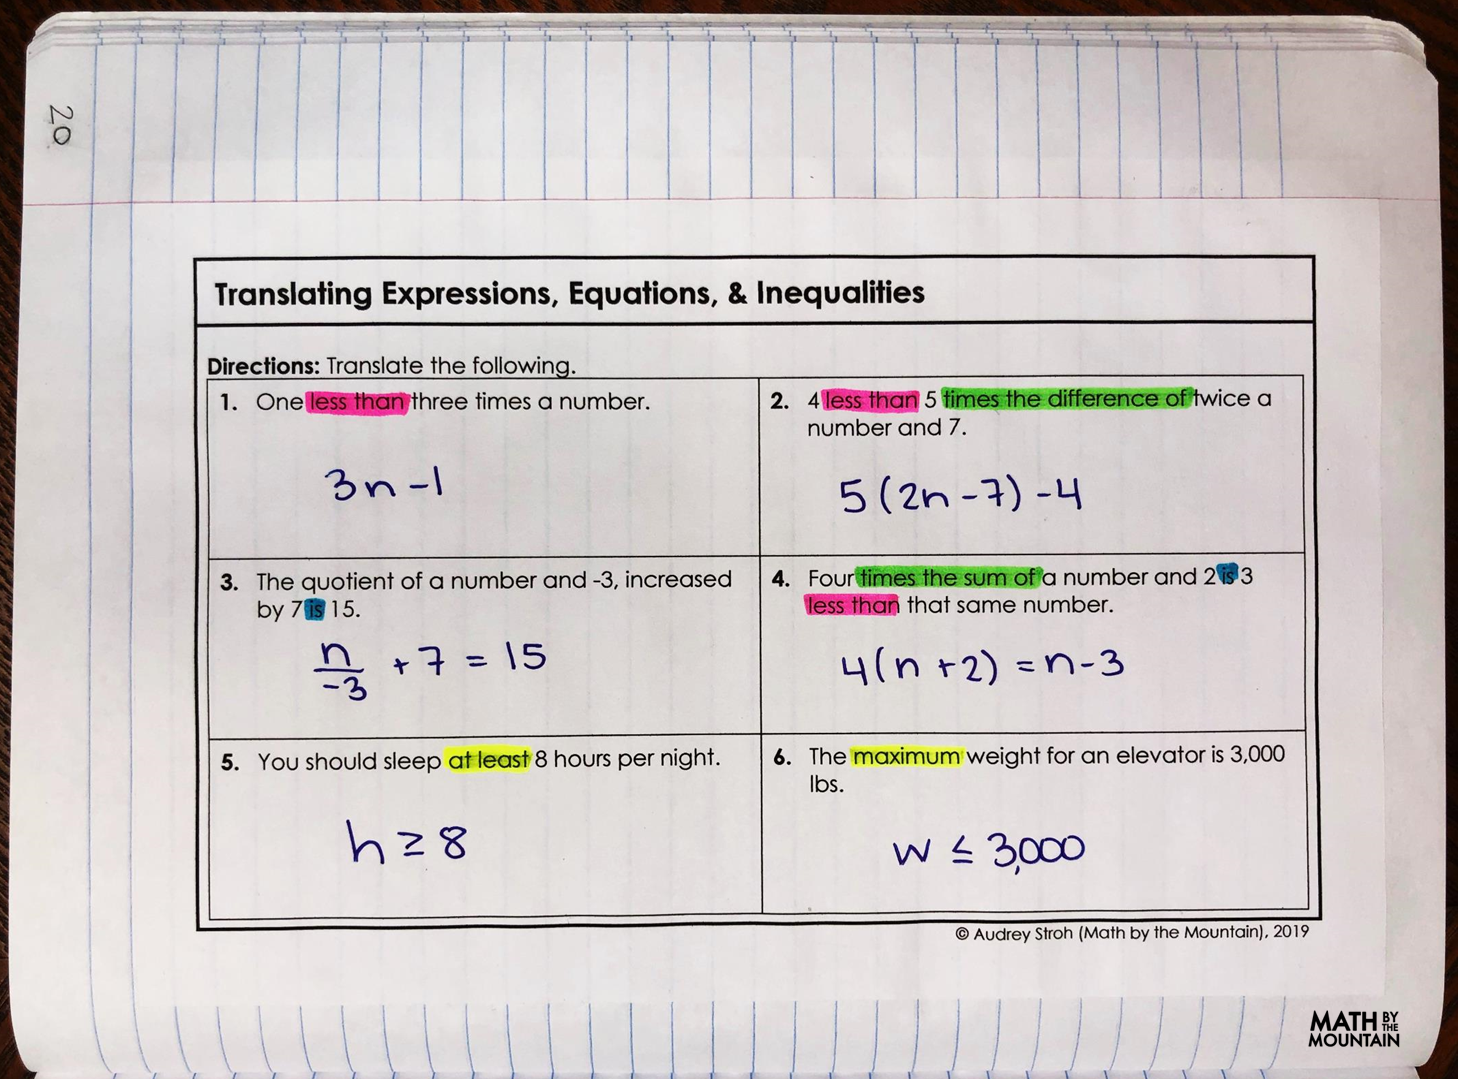 20
Translating Expressions, Equations, & Inequalities
Directions: Translate the following.
1. One less than three times a number.
3n - 1
2. 4 less than 5 times the difference of twice a
number and 7.
5(2n - 7) - 4
3. The quotient of a number and -3, increased
by 7 is 15.
n
-3
+ 7 = 15
4. Four times the sum of a number and 2 is 3
less than that same number.
4(n + 2) = n - 3
5. You should sleep at least 8 hours per night.
h ≥ 8
6. The maximum weight for an elevator is 3,000
lbs.
w ≤ 3,000
© Audrey Stroh (Math by the Mountain), 2019
MATH BY THE
MOUNTAIN